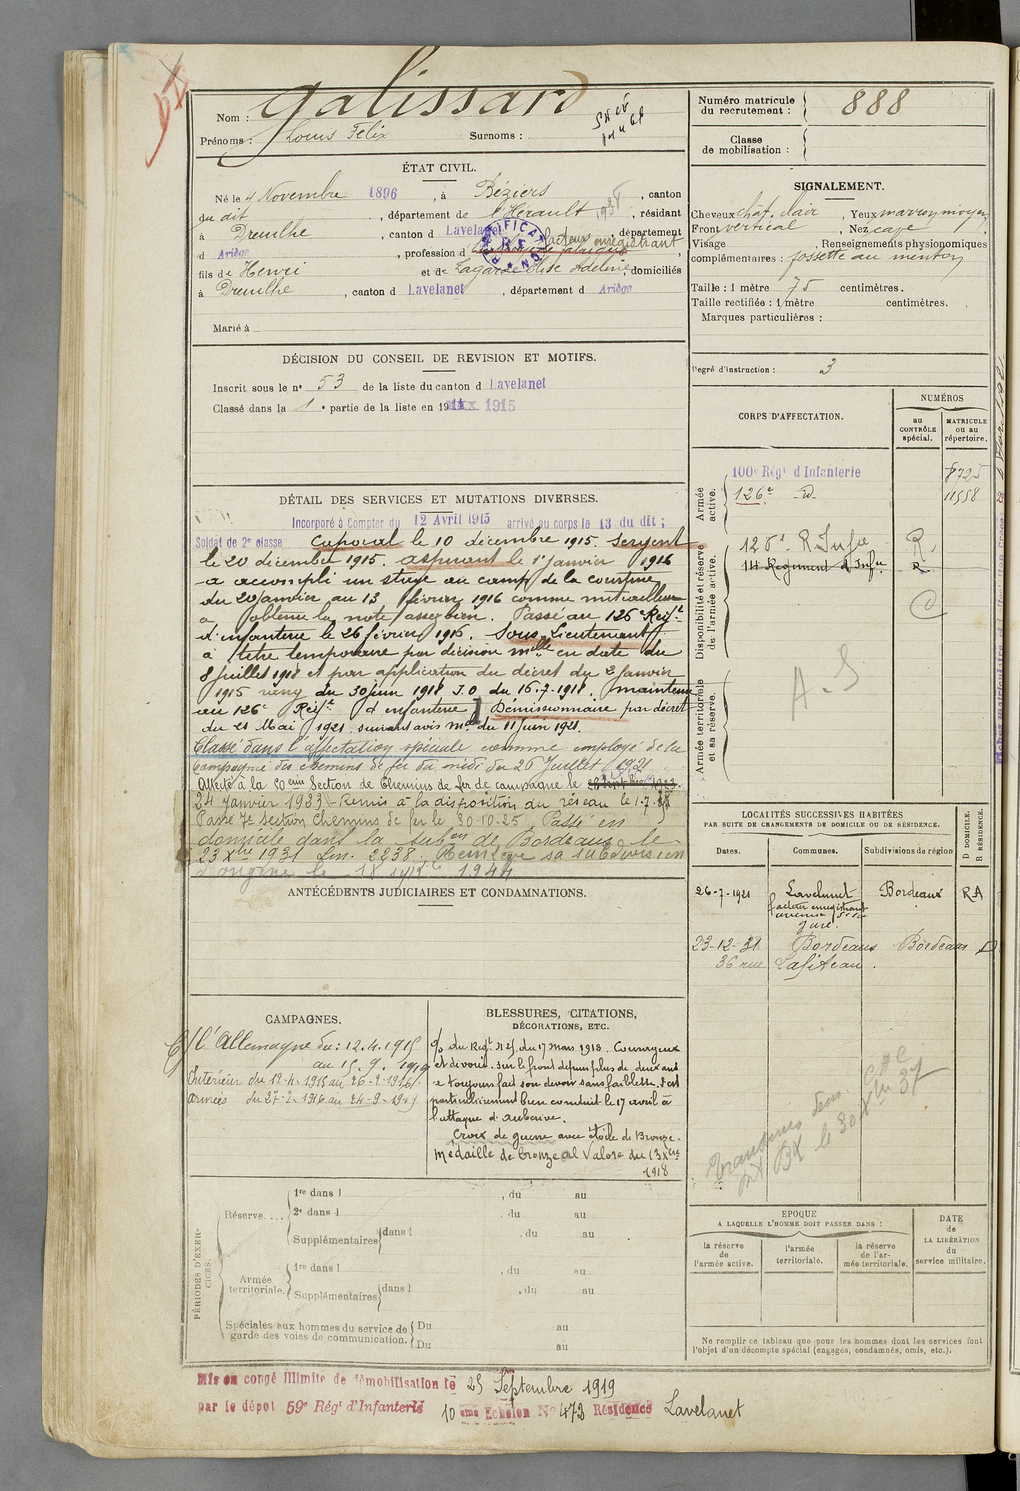 Nom : Galissard
Prénoms : Louis Félix Surnoms :
ÉTAT CIVIL.
Né le 4 Novembre 1896, à Béziers, canton
du dit, département de l'Hérault, résidant
à Dreuilhe, canton d Lavelanet, département
d Ariège, profession d facteur enregistrant
fils de Henri et de Lagarde Elise Adeline, domiciliés
à Dreuilhe, canton d Lavelanet, département d Ariège
Marié à
DÉCISION DU CONSEIL DE REVISION ET MOTIFS.
Inscrit sous le n° 53 de la liste du canton d Lavelanet
Classé dans la 1e partie de la liste en 1915
DÉTAIL DES SERVICES ET MUTATIONS DIVERSES.
Incorporé à Compter du 12 Avril 1915 arrivé au corps le 13 du dit ;
Soldat de 2e classe Caporal le 10 décembre 1915. Sergent
le 20 décembre 1915. aspirant le 1er Janvier 1916
a accompli un stage au camp de la courtine
du 20 janvier au 13 février 1916 comme mitrailleur
a obtenu la note assez bien. Passé au 126e Regt
d'infanterie le 26 février 1916. Sous-Lieutenant
à titre temporaire par décision mlle en date du
8 juillet 1918 et par application du décret du 2 Janvier
1915 rang du 30 juin 1918 J.O du 16-7-1918. maintenu
au 126e Regt d'infanterie Démissionnaire par décret
du 21 Mai 1921 suivant avis mel du 11 juin 1921.
Classé dans l'affectation spéciale comme employé de la
Compagnie des chemins de fer du midi du 26 Juillet 1921
Affecté à la 10eme Section de Chemins de fer de campagne le
24 Janvier 1923 - Remis à la disposition du réseau le 1.7.
Passé 7e section Chemins de fer le 30.10.25. Passé en
domicile dans la subon de Bordeaux le
23 Xbre 1931 Lm. 2238. Réintègre sa subdivision
d'origine le 18 1944
ANTÉCÉDENTS JUDICIAIRES ET CONDAMNATIONS.
CAMPAGNES.
C/ l'Allemagne du : 12.4.1915
au 15.9.1919
Intérieur du 12-4-1915 au 26-2-1916
armées du 27-2-1916 au 24-9-1919
BLESSURES, CITATIONS,
DÉCORATIONS, ETC.
O/ du Regt N 25 du 17 mars 1918. Courageux
et dévoué. sur le front depuis plus de deux ans
a toujours fait son devoir sans faiblesse. S'est
particulièrement bien conduit le 17 avril à
l'attaque d'Auberive.
Croix de guerre avec étoile de Bronze.
Médaille de bronze al Valore du 13 Xbre
1918
PÉRIODES D'EXERCICES.
Réserve.... 1re dans l , du au
2e dans l , du au
Supplémentaires dans l , du au
Armée territoriale. 1re dans l , du au
Supplémentaires dans l , du au
Spéciales aux hommes du service de garde des voies de communication. Du au
Du au
Mis en congé illimité de démobilisation le 25 Septembre 1919
par le dépot 59e Régt d'Infanterie 10eme Echelon N° 473 Résidence Lavelanet
Numéro matricule du recrutement : 888
Classe de mobilisation :
SIGNALEMENT.
Cheveux chat. clair, Yeux marron moyen
Front vertical, Nez cave
Visage , Renseignements physionomiques
complémentaires : fossette au menton
Taille : 1 mètre 75 centimètres.
Taille rectifiée : 1 mètre centimètres.
Marques particulières :
Degré d'instruction : 3
CORPS D'AFFECTATION.
NUMÉROS
au CONTRÔLE spécial.
MATRICULE ou au répertoire.
Armée active.
100e Régt d'Infanterie 8725
126e d° 11558
Disponibilité et réserve de l'armée active.
126e R. Infie R.
14 Régiment d'Infie R
Armée territoriale et sa réserve.
A.S
LOCALITÉS SUCCESSIVES HABITÉES
PAR SUITE DE CHANGEMENTS DE DOMICILE OU DE RÉSIDENCE.
D DOMICILE. R RÉSIDENCE.
Dates. Communes. Subdivisions de région
26-7-1921 Lavelanet Bordeaux RA
facteur enregistrant
avenue de la
gare.
23-12-31 Bordeaux Bordeaux D
36 rue Lafiteau.
EPOQUE
A LAQUELLE L'HOMME DOIT PASSER DANS :
la réserve de l'armée active.
l'armée territoriale.
la réserve de l'armée territoriale.
DATE de LA LIBÉRATION du service militaire.
Ne remplir ce tableau que pour les hommes dont les services font
l'objet d'un décompte spécial (engagés, condamnés, omis, etc.).